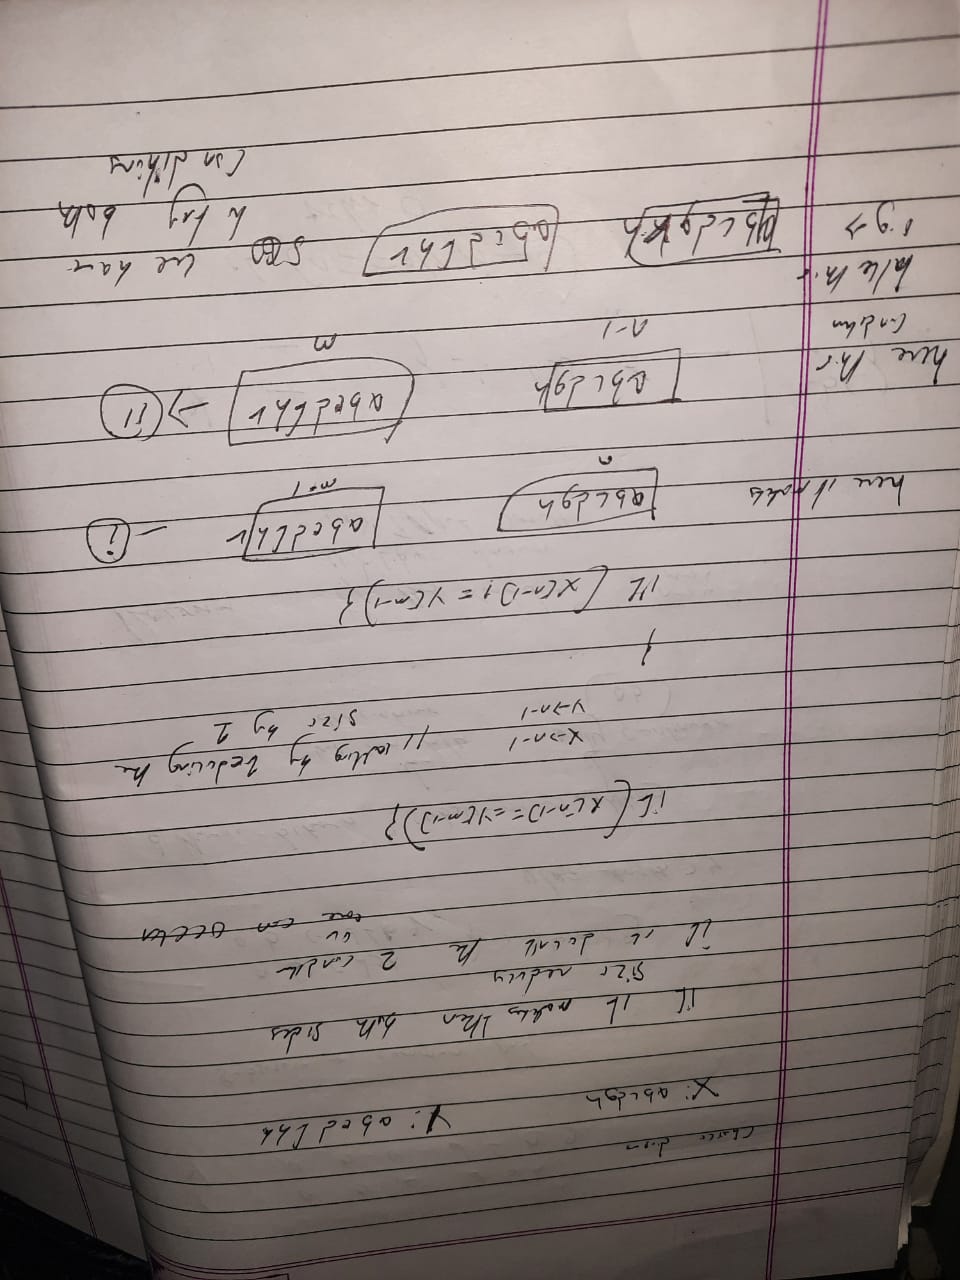 Choice diagm
X: abcdgh Y: abedfhh
if it matches then both sides
size reducy
if it dosent the 2 condtn
av
can occur
if (X[n-1]==Y[m-1])}
X->n-1 // calling by reducing the
Y->n-1 size by 1
}
if (X[n-1]!=Y[m-1]){
here it matches abcdgh abedfhr - (i)
n m-1
here this abcdgh abedfhr -> (ii)
condition n-1 m
take this
eg-> abcdgkh abcdfhr so we have
to try both
conditions